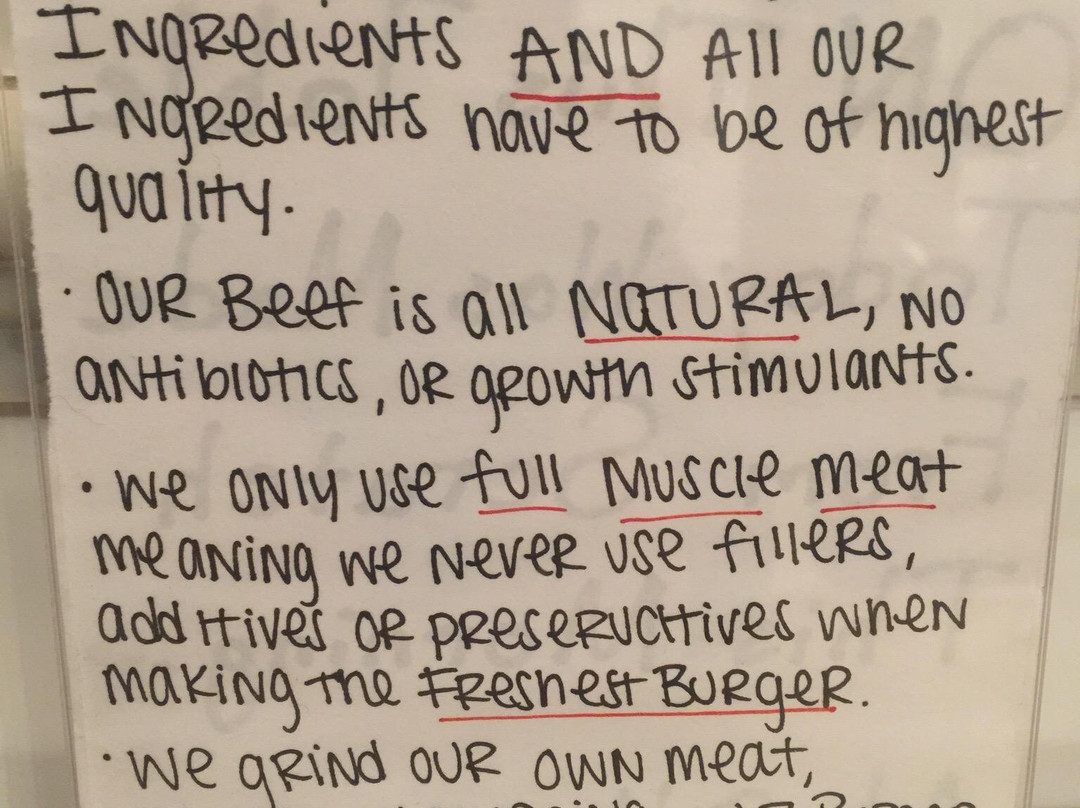 Ingredients AND All OUR
Ingredients have to be of highest
quality.
· OUR Beef is all NATURAL, NO
antibiotics, OR growth stimulants.
· We ONly use full Muscle meat
meaning we Never use fillers,
additives OR preservatives when
making the Freshest Burger.
· We grind OUR OWN meat,